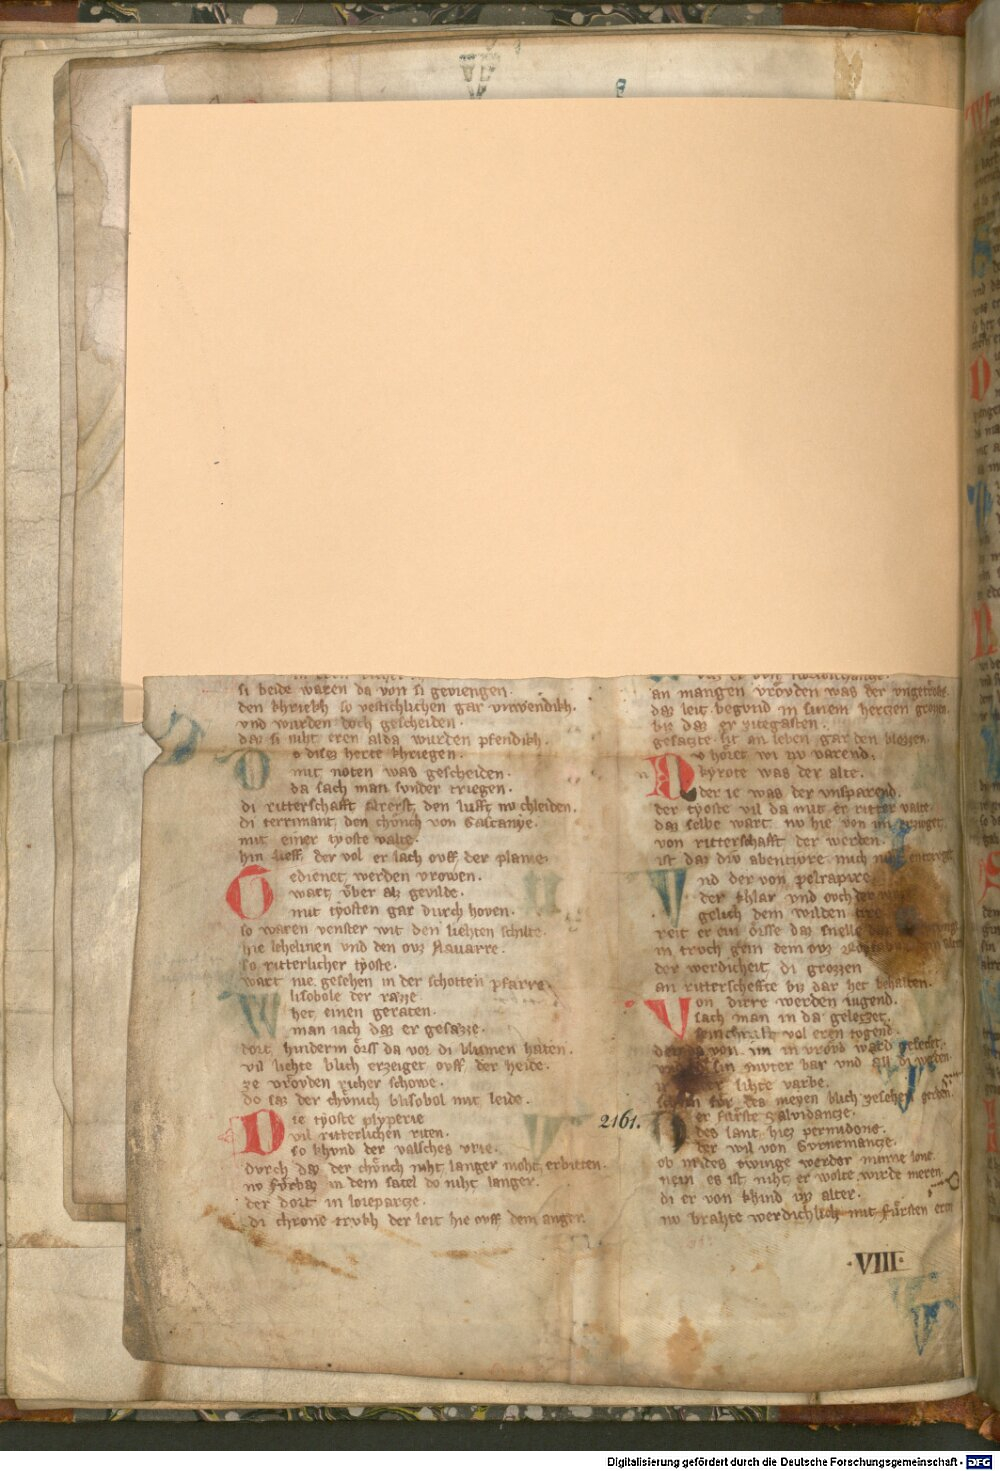 si beide waren da von si geviengen.
den khriekh so vestichlichen gar vnwendikh.
vnd wurden doch gescheiden.
daz si niht eren alda wurden pfendikh.
o diser herte khriegen.
mit noten was gescheiden.
da sach man sunder triegen.
di ritterschafft den lufft nv chleiden.
di terrinant den chv̂nch von Gascanye.
mit einer tyoste valte.
hin lieff der vol er lach ovff der planie.
Gedienet werden vrowen.
wart v̂ber al gevilde.
mit tyosten gar durch hoven.
so waren venster wit den liehten schilte.
hie lehelinen vnd den ovz Nauarre.
so ritterlicher tyoste.
wart nie gesehen in der schotten pfarre.
W lisobole der
het einen geraten.
man iach daz er gesazze.
dort hinderm ôrss da vor di blumen haten.
vil liehte blich erzeiget ovff der heide.
ze vrovden richer schowe.
do saz der chv̂nich blisobol mit leide.
Die tyoste plyperie
vil ritterlichen riten.
so khvnd der valsches vrie.
durch daz der chv̂nch niht langer moht erbitten.
nv fv̂rbaz in dem satel do niht langer.
der dort in loieparze.
di chrone trvkh der leit hie ovff dem anger.
an mangen vrôvden was der
daz leit begvnd in sinem hertzen grozzen.
biz daz er
gesatzte sit an leben gar den blozzen.
v hôret wi nv varend.
kyrote was der alte.
der ie was der vnsparend.
der tyoste vil da mit er ritter valte.
daz selbe wart nv hie von im
von ritterschafft der werden.
ist daz div abentivre mich
Vnd der von pelrapire.
der khlar vnd ovch der
gelich dem wilden
reit er ein ôrsse daz snelle
in troch gein dem ovz
der werdicheit di grozzen
an ritterscheffte biz dar het behalten.
Von dirre werden iugend.
sach man in da geletzet.
vol eren tvgend.
von im in vrôvd ward geletzet.
sin mvter bar vnd all di werden.
lihte varbe.
fv̂r des meyen blich gesehen
2161.
er fv̂rste Salvidantze.
des lant hiez pernidone.
der wil von Gvrnemantze.
ob nides twinge werder minne lone.
nein es ist niht er wolte wirde meren.
di er von khind vnz alter.
nv brahte werdichlich mit fv̂rsten eren
·VIII·
Digitalisierung gefördert durch die Deutsche Forschungsgemeinschaft - DFG